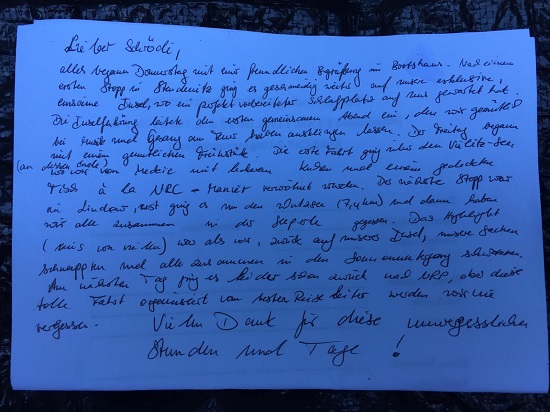 Lieber Schrödi,
alles begann Donnerstag mit einer freundlichen Begrüßung im Bootshaus. Nach einem
ersten Stopp in Steudenitz ging es geschmeidig weiter auf unsere exklusive,
einsame Insel, wo ein perfekt vorbereiteter Schlafplatz auf uns gewartet hat.
Die Inselführung leitete den ersten gemeinsamen Abend ein, den wir gemütlich
bei Musik und Gesang am Feuer haben ausklingen lassen. Der Freitag begann
mit einem gemütlichen Frühstück. Die erste Fahrt ging über den Vielitz-See
(an dessen Ende) wo wir von Meckie mit leckerem Kuchen und einem gedeckten
Tisch à la NRC-Manier verwöhnt wurden. Der nächste Stopp war
in Lindow, erst ging es um den Wutzsee (7,4km) und dann haben
wir alle zusammen in der gegessen. Das Highlight
(eins von vielen) war als wir, zurück auf unserer Insel, unsere Sachen
schnappten und alle zusammen in den Sonnenuntergang schwammen.
Am nächsten Tag ging es leider schon zurück nach NRP, aber diese
tolle Fahrt organisiert vom besten Reiseleiter werden wir nie
vergessen. Vielen Dank für diese unvergesslichen
Stunden und Tage!